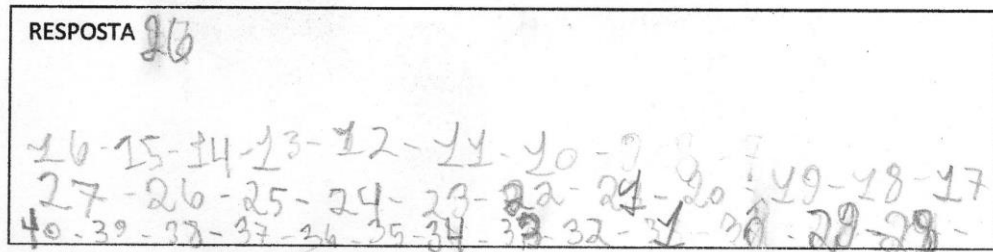 RESPOSTA 26
16-15-14-13-12-11-10-9-8-7
27-26-25-24-23-22-21-20-19-18-17
40-39-38-37-36-35-34-33-32-31-30-29-28-